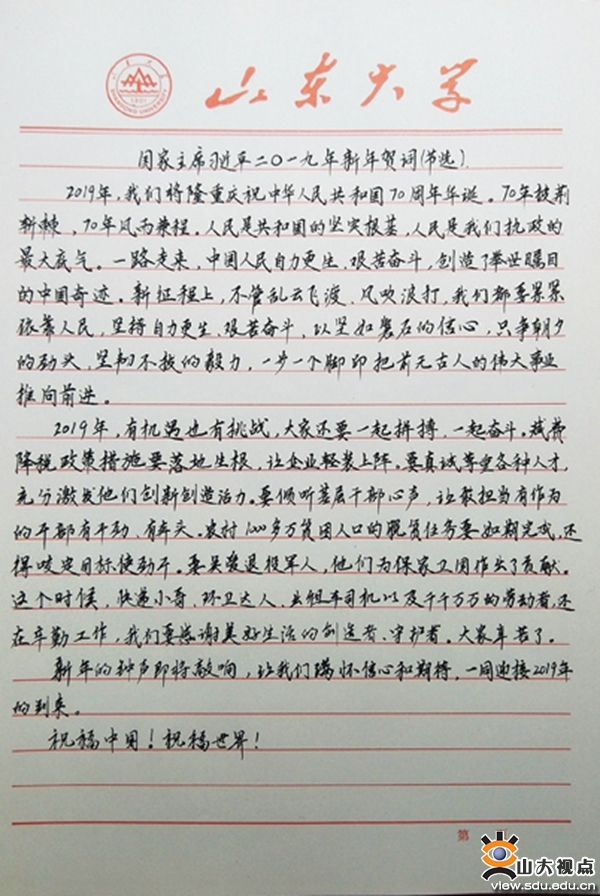 山东大学
SHANDONG UNIVERSITY
1901
国家主席习近平二〇一九年新年贺词(节选)
2019年,我们将隆重庆祝中华人民共和国70周年华诞。70年披荆
斩棘,70年风雨兼程。人民是共和国的坚实根基,人民是我们执政的
最大底气。一路走来,中国人民自力更生、艰苦奋斗,创造了举世瞩目
的中国奇迹。新征程上,不管乱云飞渡、风吹浪打,我们都要紧紧
依靠人民,坚持自力更生、艰苦奋斗,以坚如磐石的信心,只争朝夕
的劲头,坚韧不拔的毅力,一步一个脚印把前无古人的伟大事业
推向前进。
2019年,有机遇也有挑战,大家还要一起拼搏、一起奋斗。减费
降税政策措施要落地生根,让企业轻装上阵。要真诚尊重各种人才,
充分激发他们创新创造活力。要倾听基层干部心声,让敢担当有作为
的干部有干劲、有奔头。农村1000多万贫困人口的脱贫任务要如期完成,还
得咬定目标使劲干。要关爱退役军人,他们为保家卫国作出了贡献。
这个时候,快递小哥、环卫工人、出租车司机以及千千万万的劳动者,还
在辛勤工作,我们要感谢美好生活的创造者、守护者。大家辛苦了。
新年的钟声即将敲响,让我们满怀信心和期待,一同迎接2019年
的到来。
祝福中国!祝福世界!
第
山大视点
view.sdu.edu.cn